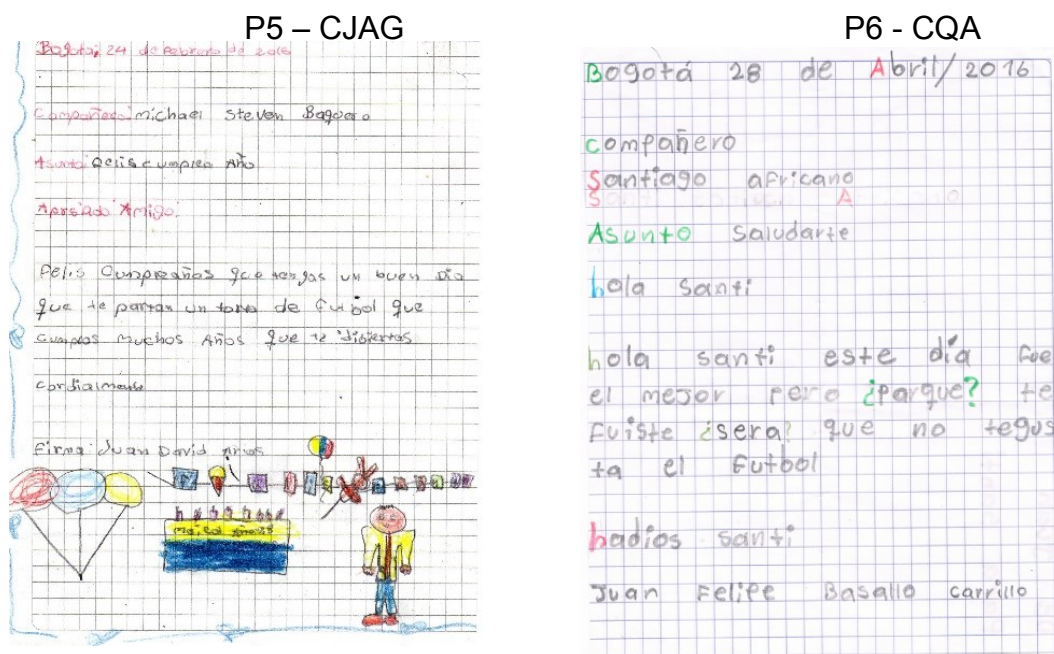 P5 – CJAG
Bogota, 24 de febrero de 2016
Compañero: michael Steven Baquero
Asunto Felis cumpleo Año
Amigo.
Felis Cumpreaños que tengas un buen Dia
que te partan un de futbol que
cumplas muchos Años que te
cordialmente
Firma Juan David Arias
P6 - CQA
Bogotá 28 de Abril/2016
compañero
Santiago africano
Asunto Saludarte
hola Santi
hola santi este día fue
el mejor pero ¿Parque? te
Fuiste ¿sera? que no tegus
ta el Futbol
badios santi
Juan Felipe Basallo carrillo